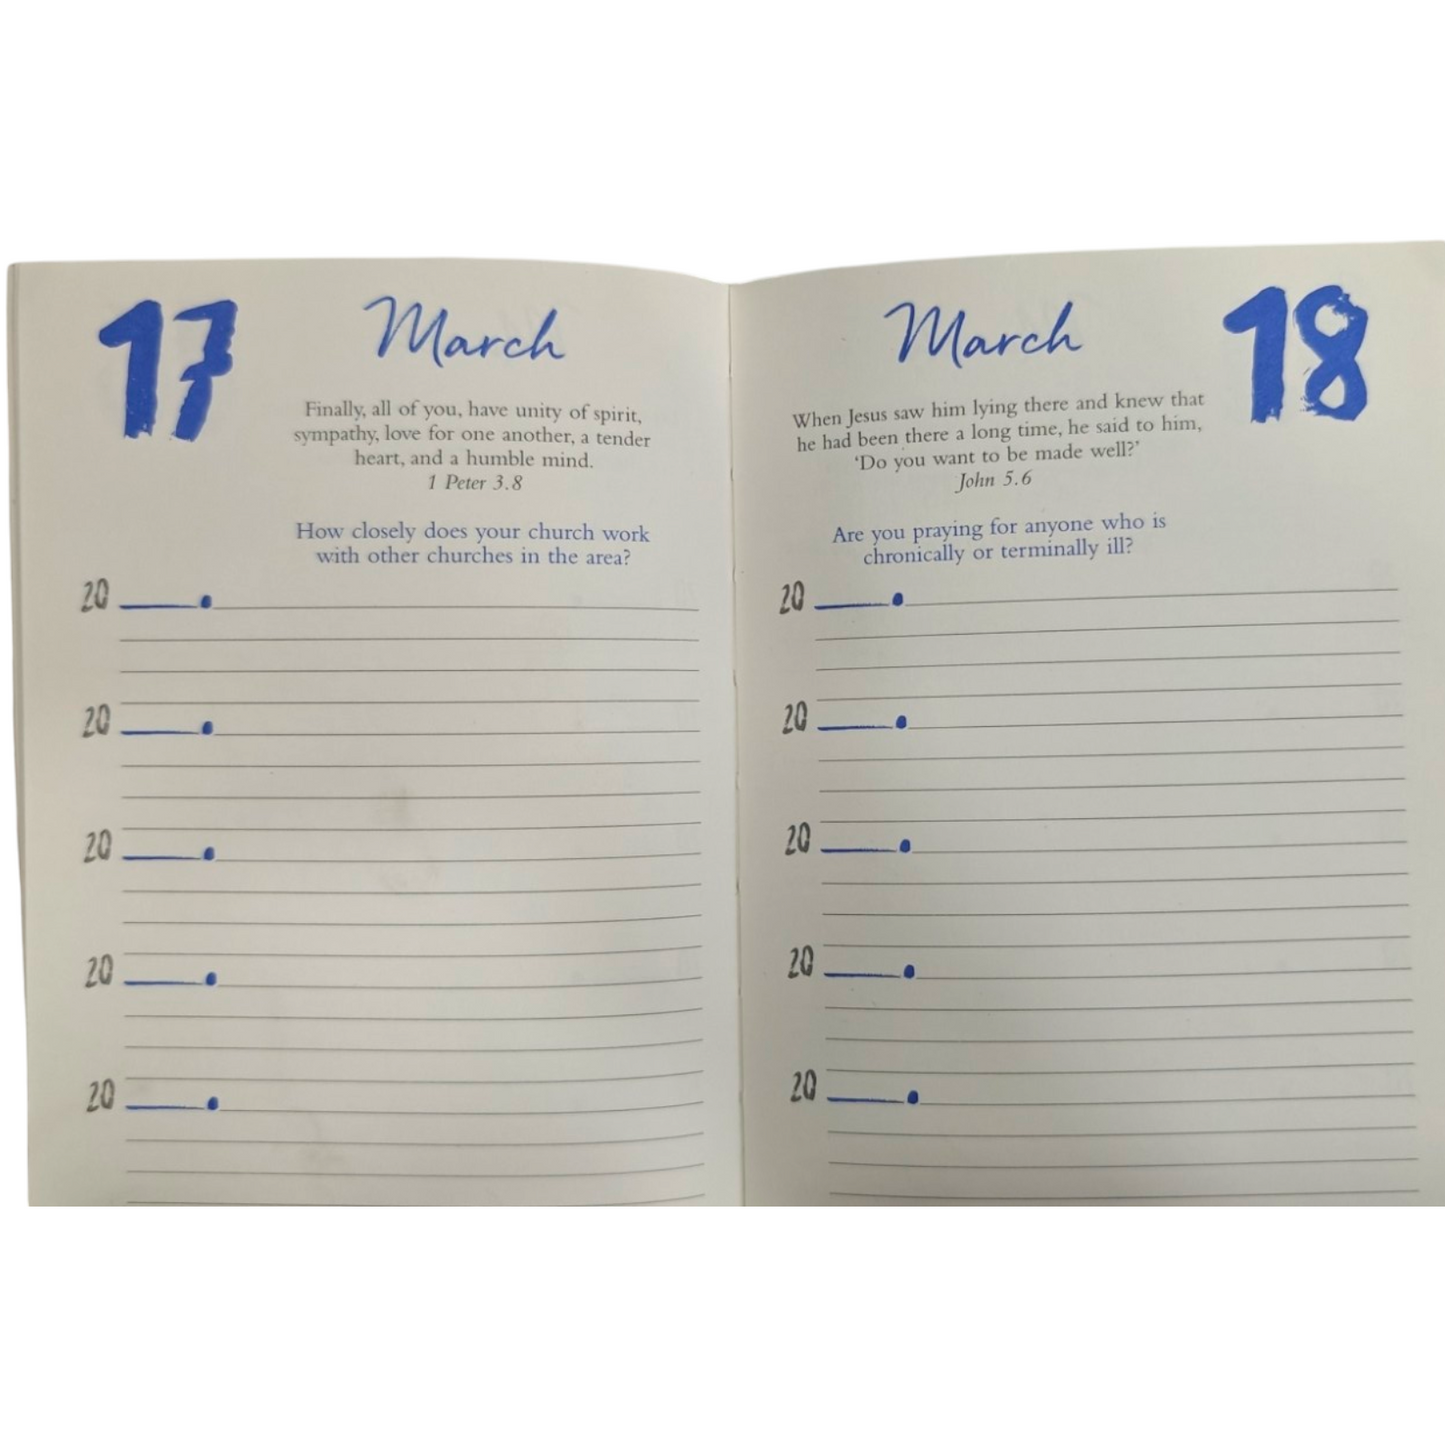 17 March
Finally, all of you, have unity of spirit,
sympathy, love for one another, a tender
heart, and a humble mind.
1 Peter 3.8
How closely does your church work
with other churches in the area?
20
20
20
20
20
March 18
When Jesus saw him lying there and knew that
he had been there a long time, he said to him,
‘Do you want to be made well?’
John 5.6
Are you praying for anyone who is
chronically or terminally ill?
20
20
20
20
20